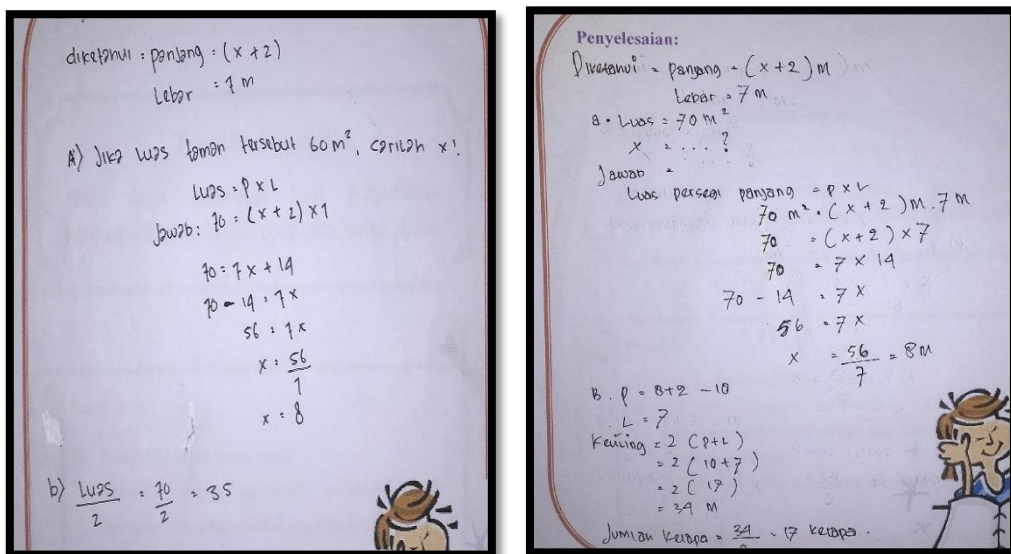 diketahui : panjang : (x + 2)
Lebar : 7 m
A) Jika luas taman tersebut 60 m², carilah x!
Luas = P x L
Jawab : 70 = (x + 2) x 7
70 = 7x + 14
70 - 14 = 7x
56 = 7x
x = 56/7
x = 8
b) Luas/2 = 70/2 = 35
Penyelesaian:
Diketahui = panjang = (x+2) m
Lebar = 7 m
a. Luas = 70 m²
x = .... ?
Jawab =
Luas persegi panjang = p x L
70 m² = (x + 2) m . 7 m
70 = (x+2) x 7
70 = 7 x 14
70 - 14 = 7x
56 = 7x
x = 56/7 = 8 m
B. p = 8+2 = 10
L = 7
Keliling = 2 (p+L)
= 2 (10+7)
= 2 (17)
= 34 M
Jumlah kelapa = 34/2 = 17 kelapa.